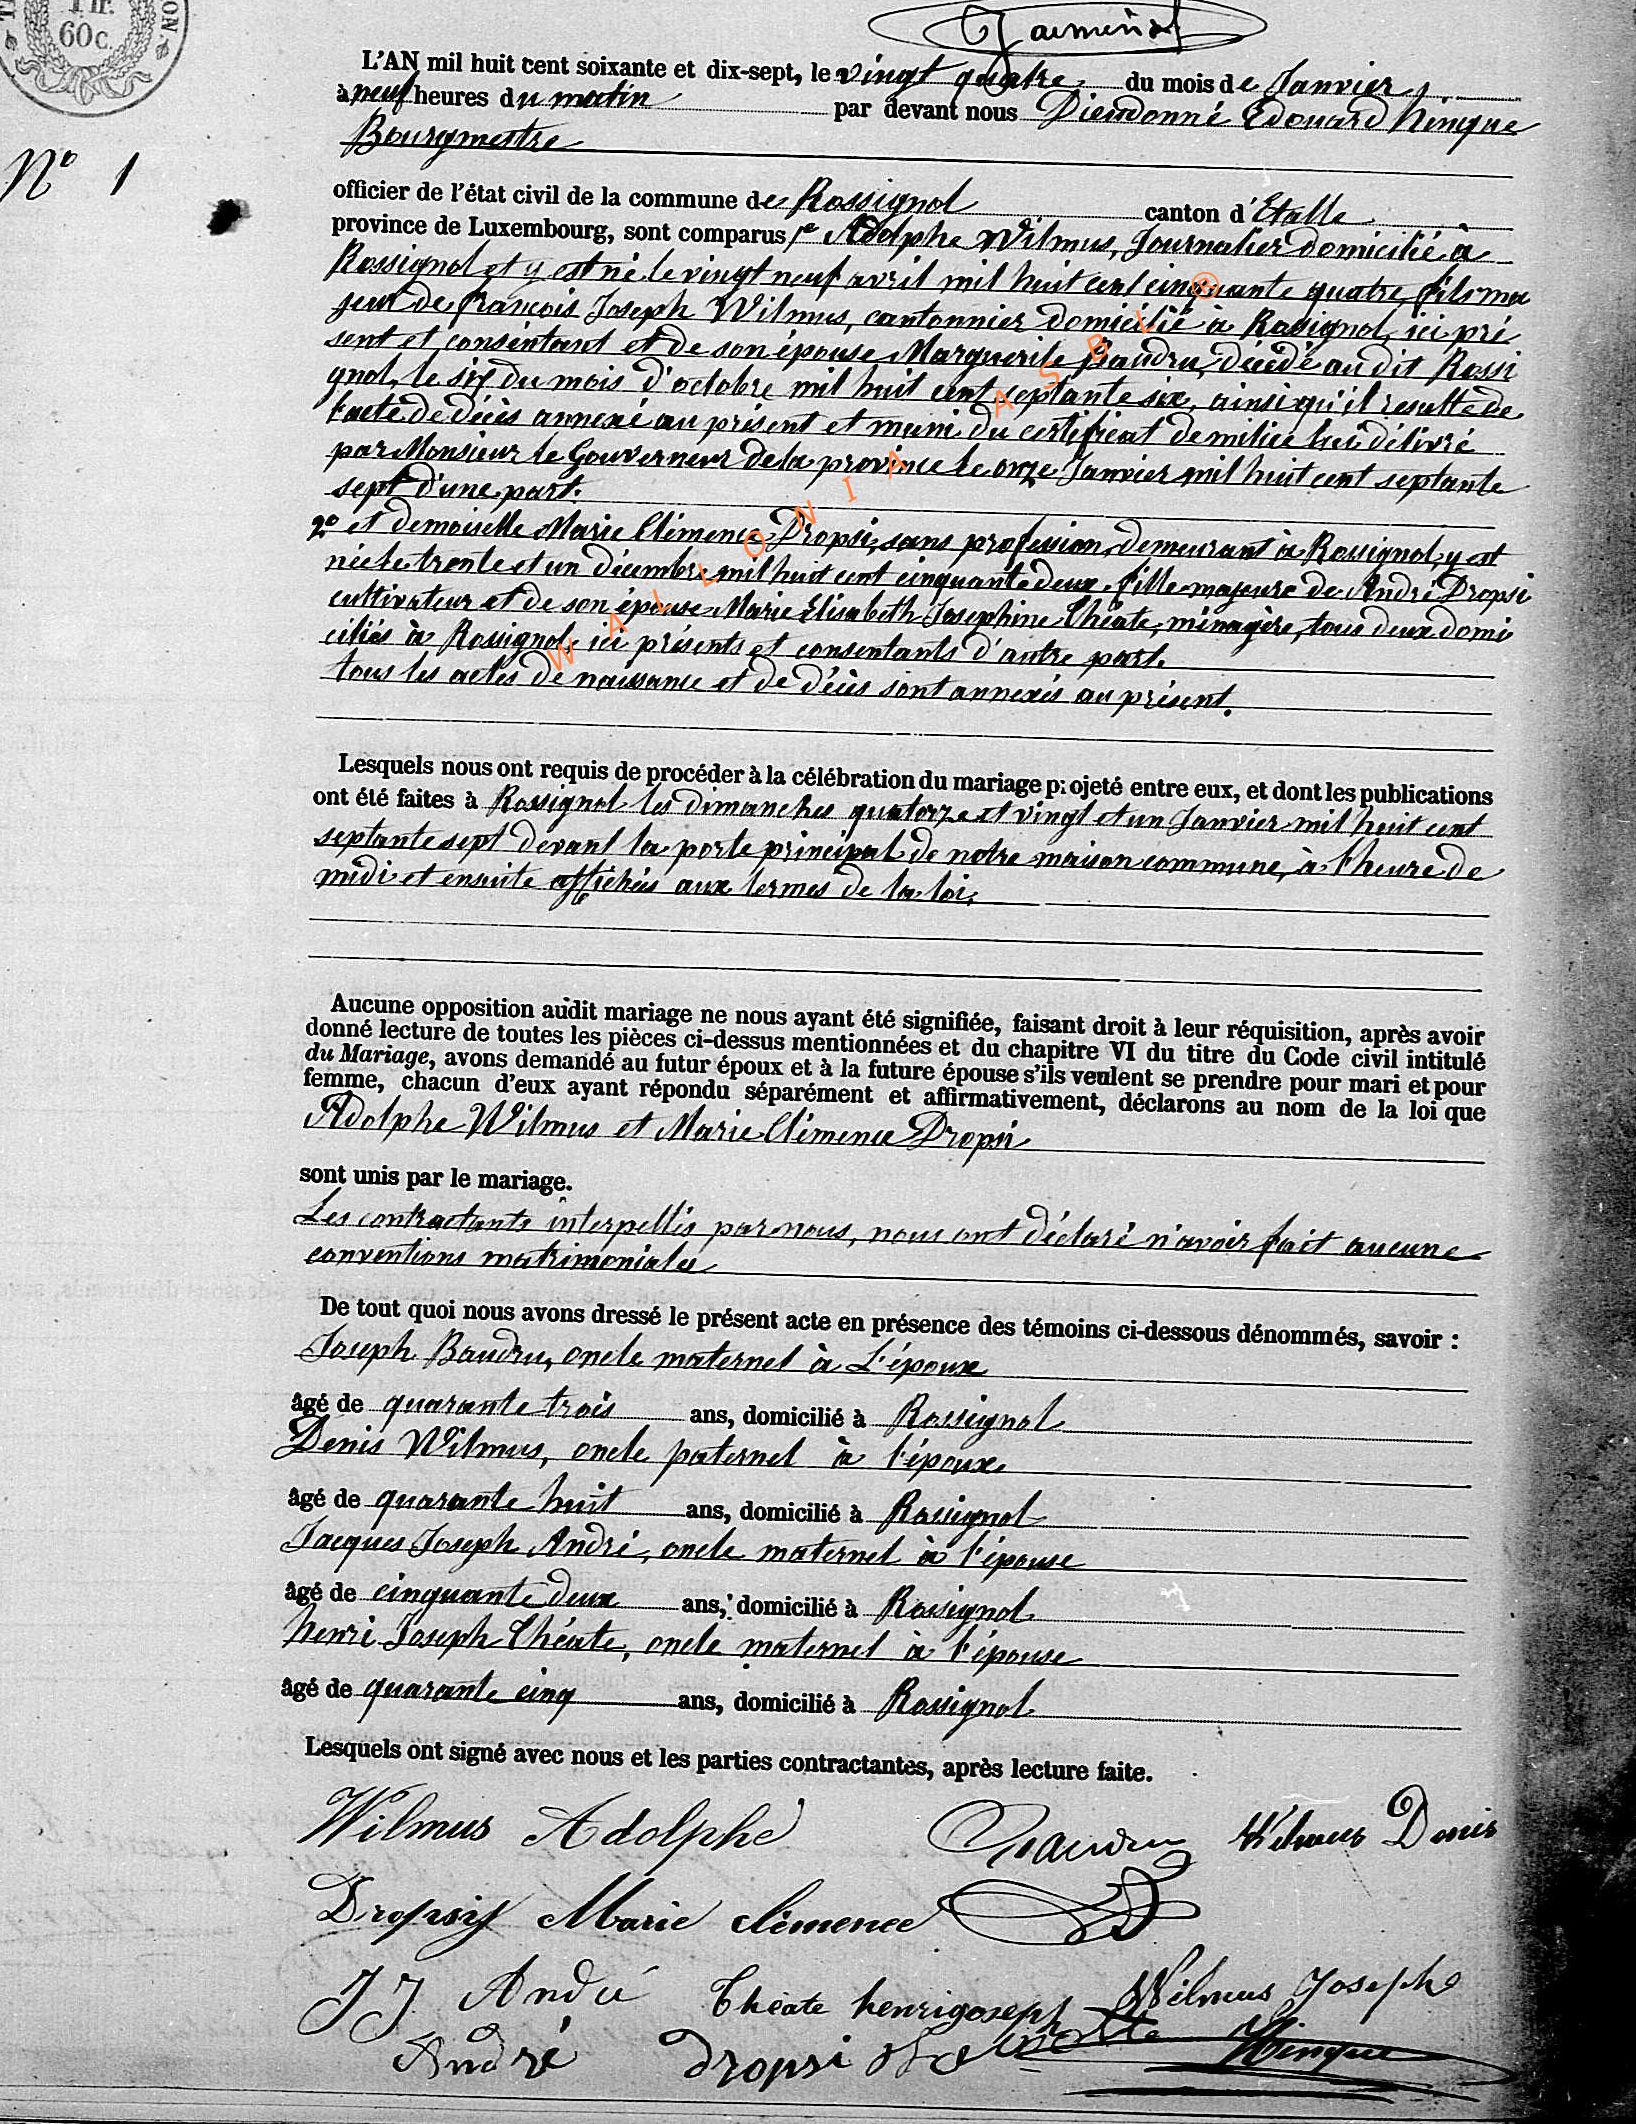 1 fr.
60 c.
L'AN mil huit cent soixante et dix-sept, le vingt quatre du mois de Janvier,
à neuf heures du matin par devant nous Dieudonné Edouard hinque
Bourgmestre
N° 1
officier de l'état civil de la commune de Rossignol canton d'Etalle
province de Luxembourg, sont comparus 1° Adolphe Wilmus, Journalier domicilié à
Rossignol et y est né le vingt neuf avril mil huit cent cinquante quatre, fils ma
jeur de françois Joseph Wilmus, cantonnier domicilié à Rossignol, ici pré
sent et consentant et de son épouse Marguerite Baudru, décédé au dit Rossi
gnol, le six du mois d'octobre mil huit cent septante six, ainsi qu'il resulte de
l'acte de décès annexé au présent et muni du certificat de milice lui délivré
par Monsieur le Gouverneur de la province le onze Janvier mil huit cent septante
sept d'une part.
2° et demoiselle Marie Clémence Dropsi, sans profession, demeurant à Rossignol, y est
née le trente et un décembre mil huit cent cinquante deux, fille majeure de André Dropsi
cultivateur et de son épouse Marie Elisabeth Josephine Théate, ménagère, tous deux domi
ciliés à Rossignol, ici présents et consentants d'autre part.
tous les actes de naissance et de décès sont annexés au présent.
WALLONIA ASBL ®
Lesquels nous ont requis de procéder à la célébration du mariage projeté entre eux, et dont les publications
ont été faites à Rossignol les dimanches quatorze et vingt et un Janvier mil huit cent
septante sept devant la porte principal de notre maison commune, à l'heure de
midi et ensuite affichés aux termes de la loi.
Aucune opposition audit mariage ne nous ayant été signifiée, faisant droit à leur réquisition, après avoir
donné lecture de toutes les pièces ci-dessus mentionnées et du chapitre VI du titre du Code civil intitulé
du Mariage, avons demandé au futur époux et à la future épouse s'ils veulent se prendre pour mari et pour
femme, chacun d'eux ayant répondu séparément et affirmativement, déclarons au nom de la loi que
Adolphe Wilmus et Marie Clémence Dropsi
sont unis par le mariage.
Les contractants interpellés par nous, nous ont déclaré n'avoir fait aucune
conventions matrimoniales
De tout quoi nous avons dressé le présent acte en présence des témoins ci-dessous dénommés, savoir :
Joseph Baudru, oncle maternel à L'époux
âgé de quarante trois ans, domicilié à Rossignol
Denis Wilmus, oncle paternel à l'époux
âgé de quarante huit ans, domicilié à Rossignol
Jacques Joseph André, oncle maternel à l'épouse
âgé de cinquante deux ans, domicilié à Rossignol
henri Joseph Théate, oncle maternel à l'épouse
âgé de quarante cinq ans, domicilié à Rossignol
Lesquels ont signé avec nous et les parties contractantes, après lecture faite.
Wilmus Adolphe Baudru Wilmus Denis
Dropsiy Marie clémence
J J André Théate henri joseph Wilmus Joseph
André Dropsi hinque